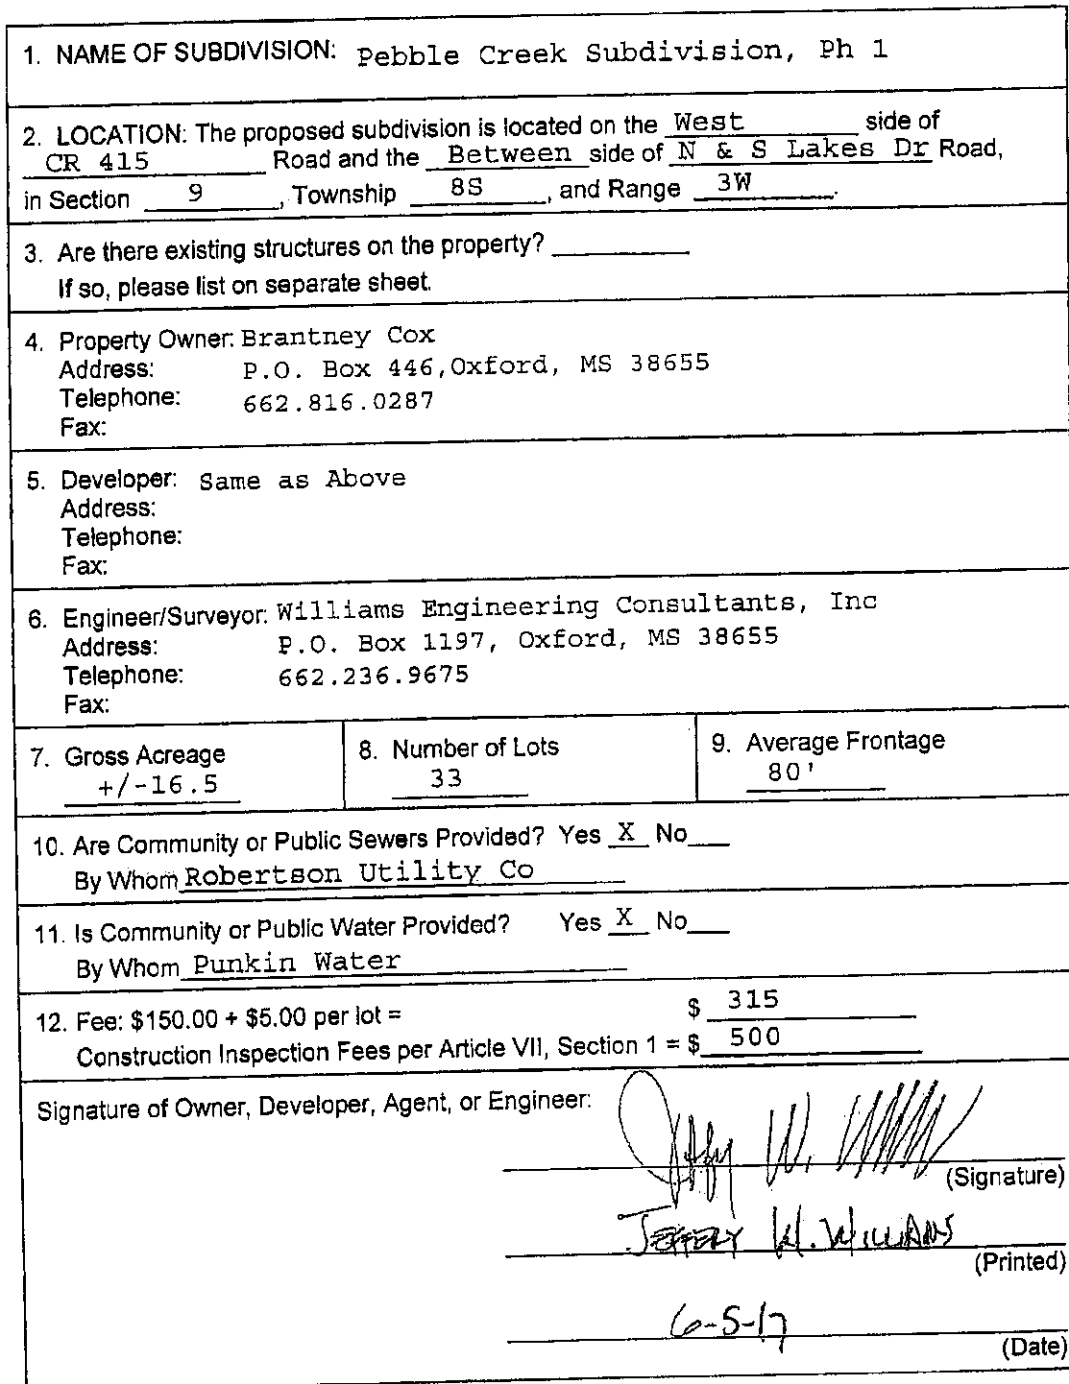 1. NAME OF SUBDIVISION: Pebble Creek Subdivision, Ph 1
2. LOCATION: The proposed subdivision is located on the West side of
CR 415 Road and the Between side of N & S Lakes Dr Road,
in Section 9, Township 8S, and Range 3W.
3. Are there existing structures on the property?
If so, please list on separate sheet.
4. Property Owner: Brantney Cox
Address: P.O. Box 446,Oxford, MS 38655
Telephone: 662.816.0287
Fax:
5. Developer: Same as Above
Address:
Telephone:
Fax:
6. Engineer/Surveyor: Williams Engineering Consultants, Inc
Address: P.O. Box 1197, Oxford, MS 38655
Telephone: 662.236.9675
Fax:
7. Gross Acreage
+/-16.5
8. Number of Lots
33
9. Average Frontage
80'
10. Are Community or Public Sewers Provided? Yes X No
By Whom Robertson Utility Co
11. Is Community or Public Water Provided? Yes X No
By Whom Punkin Water
12. Fee: $150.00 + $5.00 per lot = $ 315
Construction Inspection Fees per Article VII, Section 1 = $ 500
Signature of Owner, Developer, Agent, or Engineer:
(Signature)
JEFFERY W. WILLIAMS
(Printed)
6-5-17
(Date)